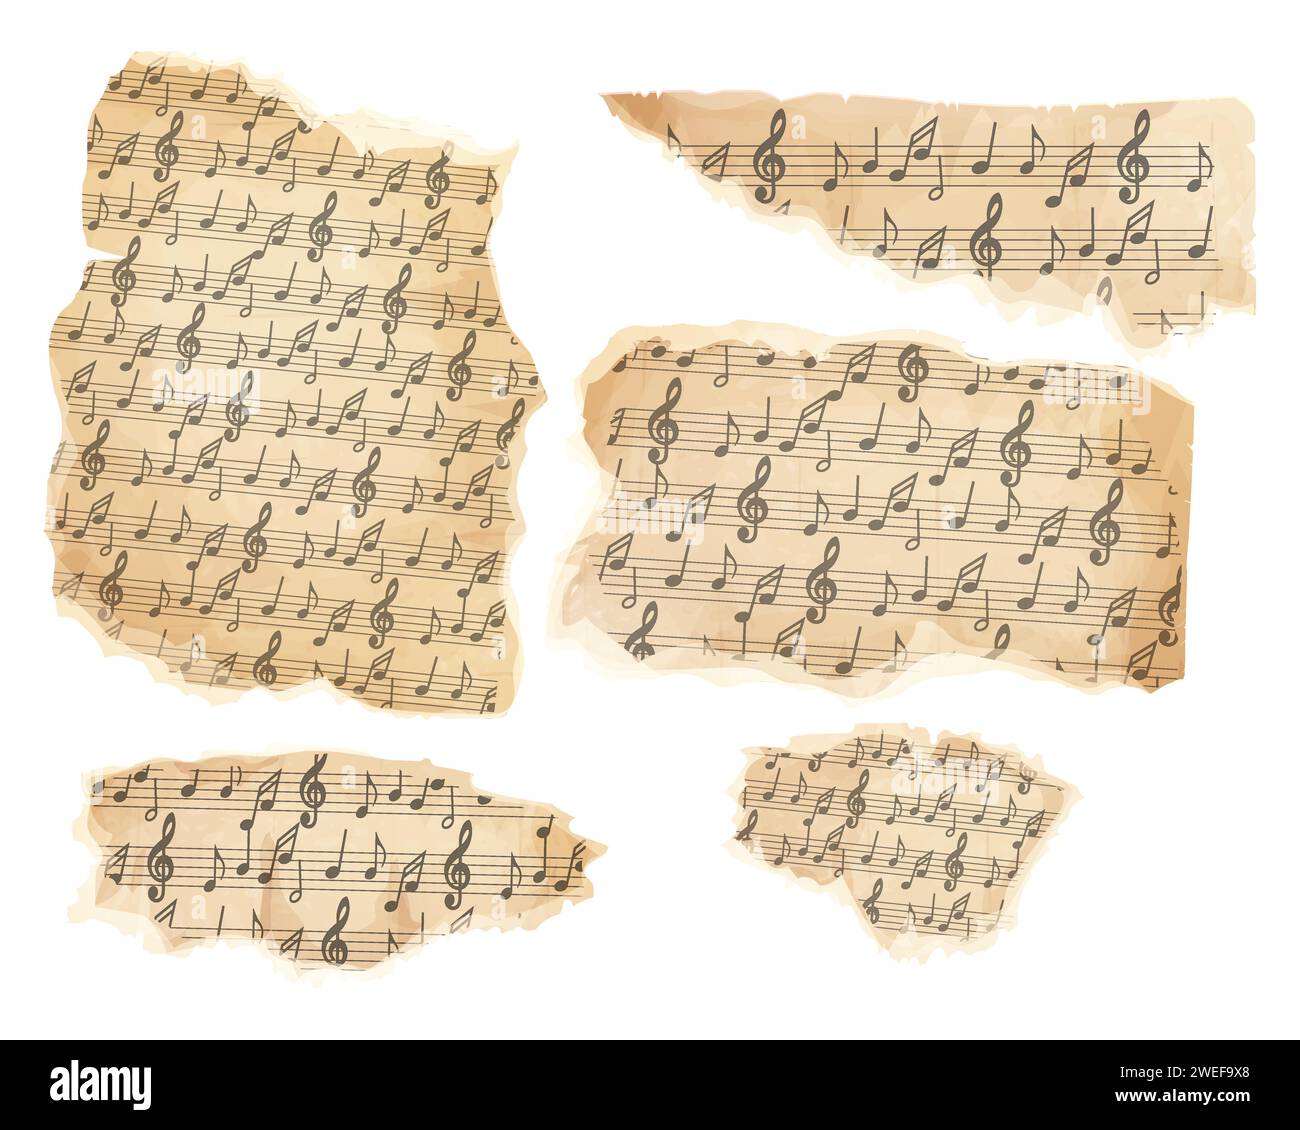 alamy
Image ID: 2WEF9X8
www.alamy.com